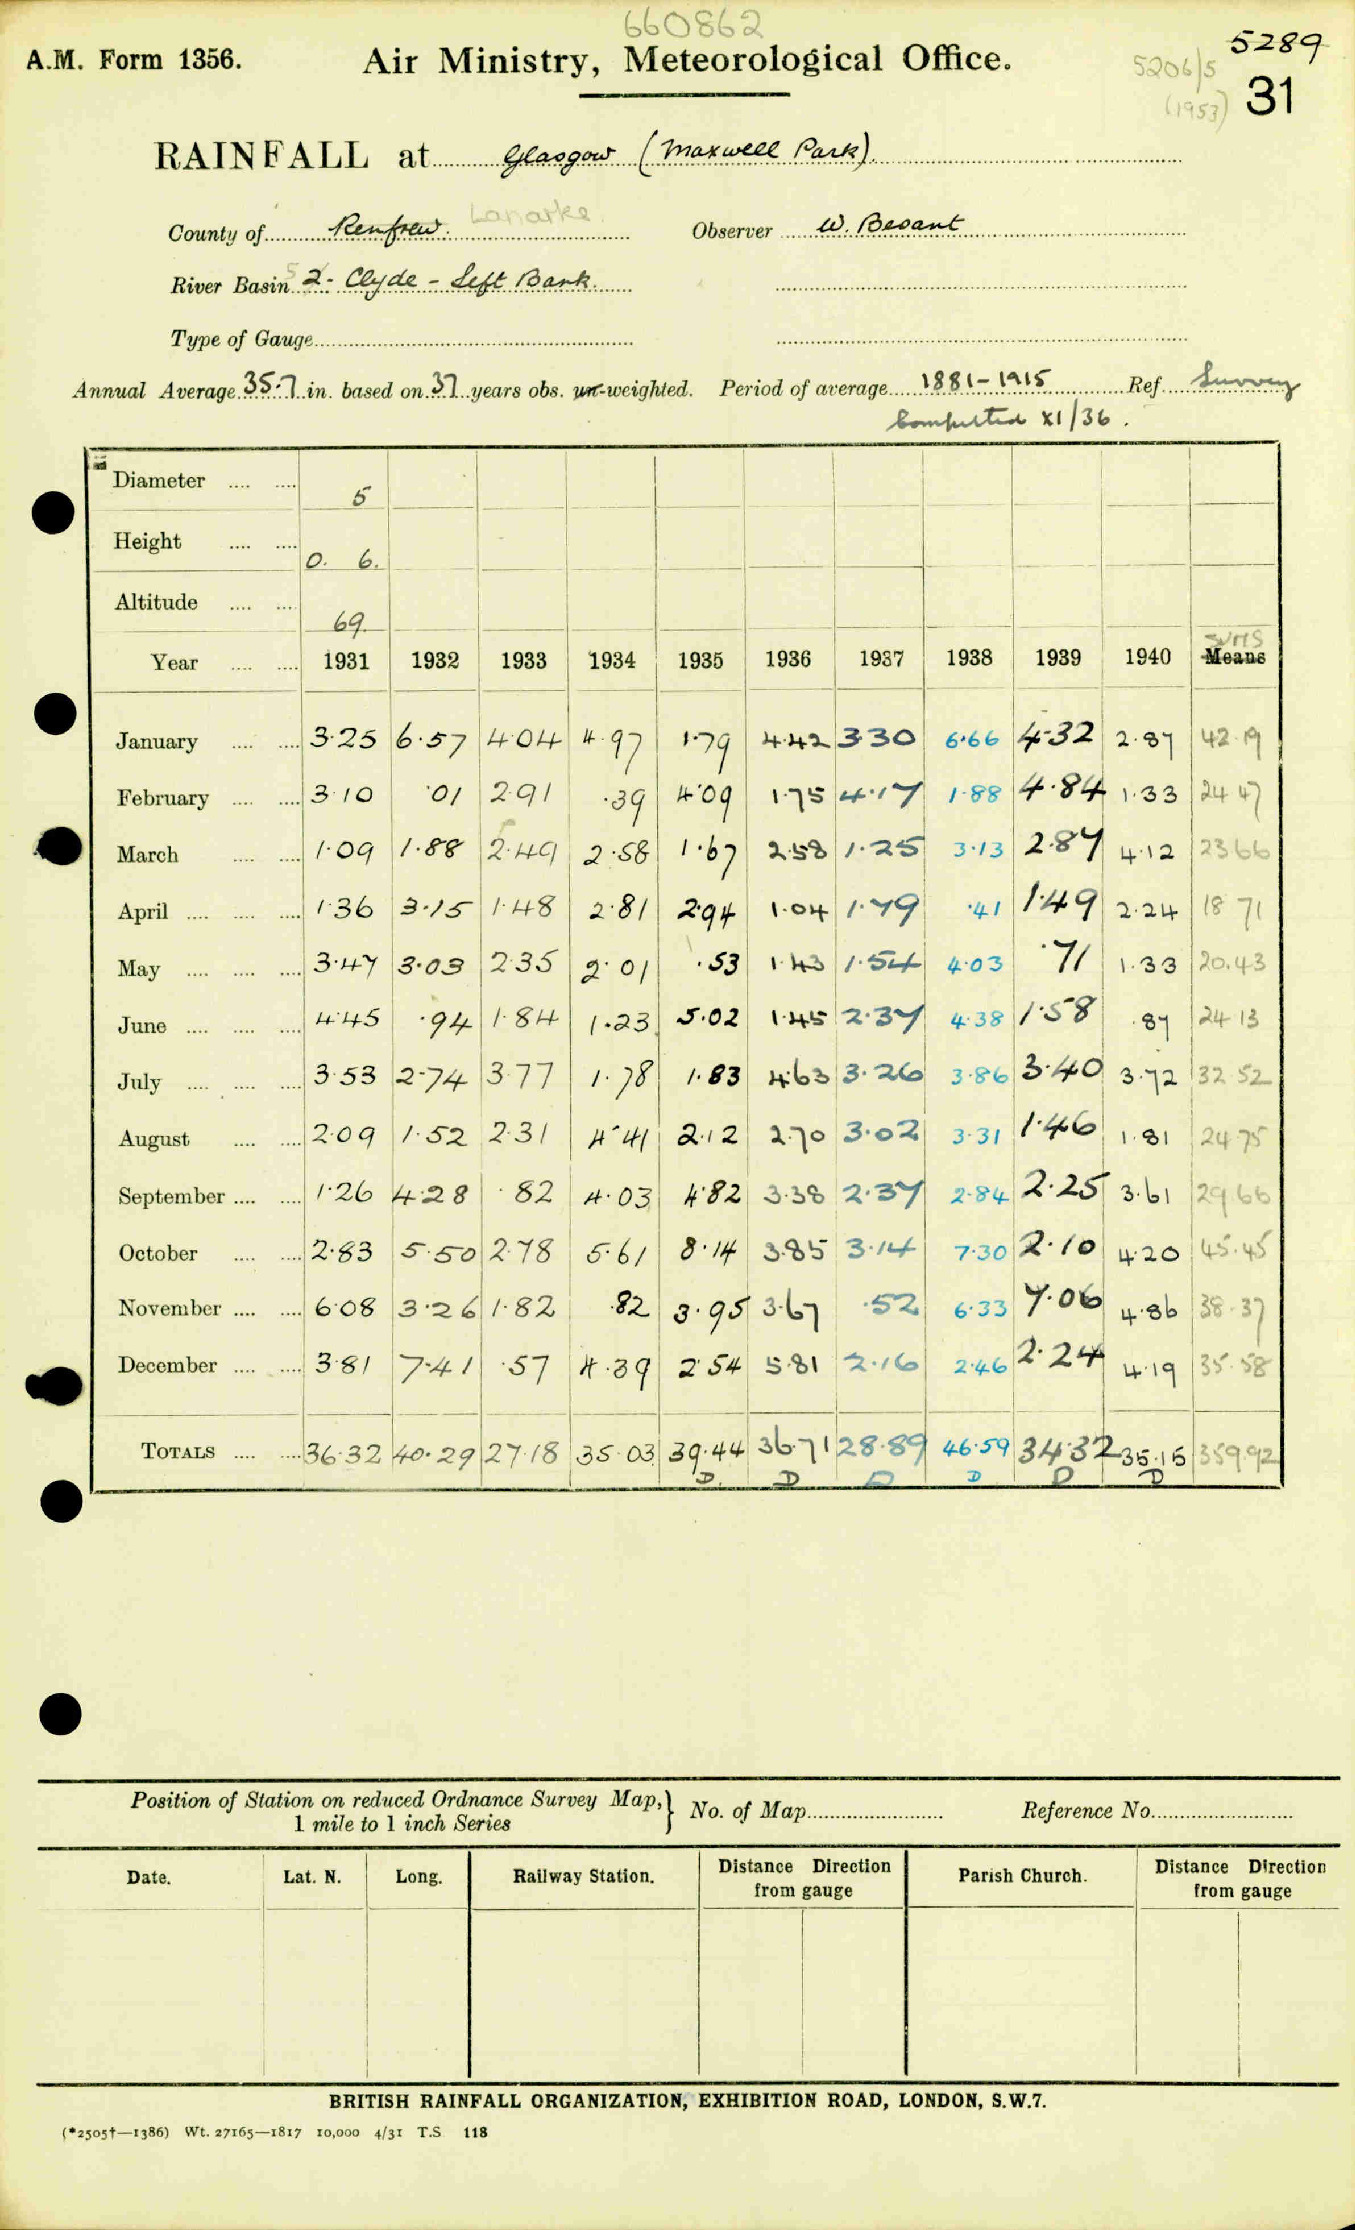 660862
5289
A.M. Form 1356. Air Ministry, Meteorological Office. 5206/5
(1953) 31
RAINFALL at Glasgow (Maxwell Park).
County of Renfrew. Lanarks. Observer W. Besant
River Basin 2 - Clyde - Left Bank.
Type of Gauge
Annual Average 35·7 in. based on 37 years obs. un-weighted. Period of average 1881-1915 Ref. Survey
Computed XI/36.
Diameter 5
Height 0. 6.
Altitude 69.
Sums
Year 1931 1932 1933 1934 1935 1936 1937 1938 1939 1940 Means
January 3·25 6·57 4·04 4·97 1·79 4·42 3·30 6·66 4·32 2·87 42·19
February 3·10 ·01 2·91 ·39 4·09 1·75 4·17 1·88 4·84 1·33 24 47
March 1·09 1·88 2·49 2·58 1·67 2·58 1·25 3·13 2·87 4·12 23 66
April 1·36 3·15 1·48 2·81 2·94 1·04 1·79 ·41 1·49 2·24 18 71
May 3·47 3·03 2·35 2·01 ·53 1·43 1·54 4·03 ·71 1·33 20.43
June 4·45 ·94 1·84 1·23 5·02 1·45 2·37 4·38 1·58 ·87 24 13
July 3·53 2·74 3·77 1·78 1·83 4·63 3·26 3·86 3·40 3·72 32 52
August 2·09 1·52 2·31 4·41 2·12 2·70 3·02 3·31 1·46 1·81 24 75
September 1·26 4·28 ·82 4·03 4·82 3·38 2·37 2·84 2·25 3·61 29 66
October 2·83 5·50 2·78 5·61 8·14 3·85 3·14 7·30 2·10 4·20 45·45
November 6·08 3·26 1·82 ·82 3·95 3·67 ·52 6·33 7·06 4·86 38·37
December 3·81 7·41 ·57 4·39 2·54 5·81 2·16 2·46 2·24 4·19 35·58
TOTALS 36·32 40·29 27·18 35·03 39·44 36·71 28·89 46·59 34·32 35·15 359.92
D. D D D D D
Position of Station on reduced Ordnance Survey Map,} No. of Map Reference No.
1 mile to 1 inch Series
Date. Lat. N. Long. Railway Station. Distance from gauge Direction Parish Church. Distance from gauge Direction
BRITISH RAINFALL ORGANIZATION, EXHIBITION ROAD, LONDON, S.W.7.
(*2505†—1386) Wt. 27165—1817 10,000 4/31 T.S. 118